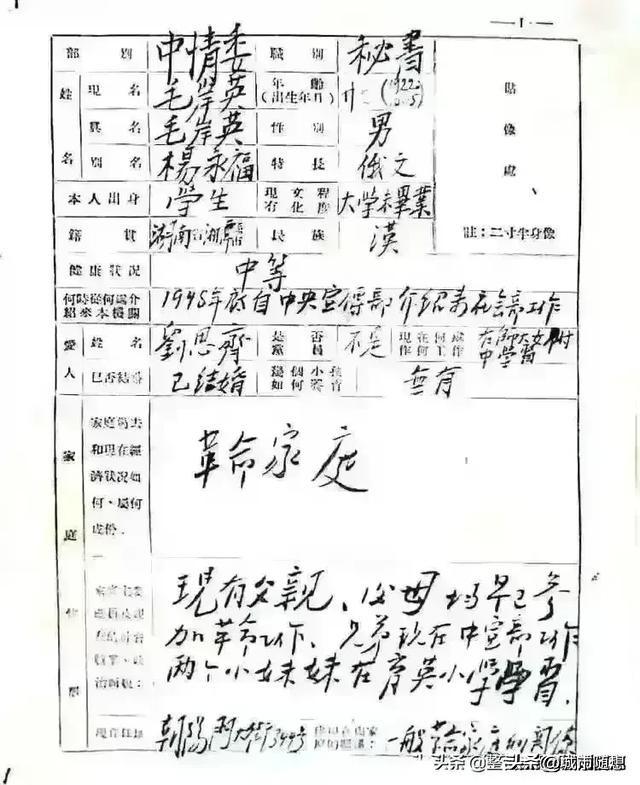 — 1 · —
部別 中情委 職別 秘書
姓名 現名 毛岸英 年齡(出生年月) 廿 (1922
真名 毛岸英 性別 男
別名 楊永福 特長 俄文
貼像處
本人出身 學生 現有文化程度 大学未畢業
籍貫 湖南省湘 民族 漢
註：二寸半身像
健康狀况 中等
何時從何處介紹來本機關 1948年 自中央宣傳部介紹 社会部工作
愛人 姓名 劉思齊 是否黨員 不是 現在何處作何工作 在師大女附中學習
已否結婚 已结婚 幾個小孩如何撫育 無有
家庭情形
家庭過去和現在經濟狀况如何，屬何成份．
革命家庭
家庭主要
現有父親、父母均早已参
加革命工作、兄弟現在中宣部工作
两个小妹妹在育英小學學習．
現在住址 朝陽門大街 一般革命家庭的關係
头条 @城市随想